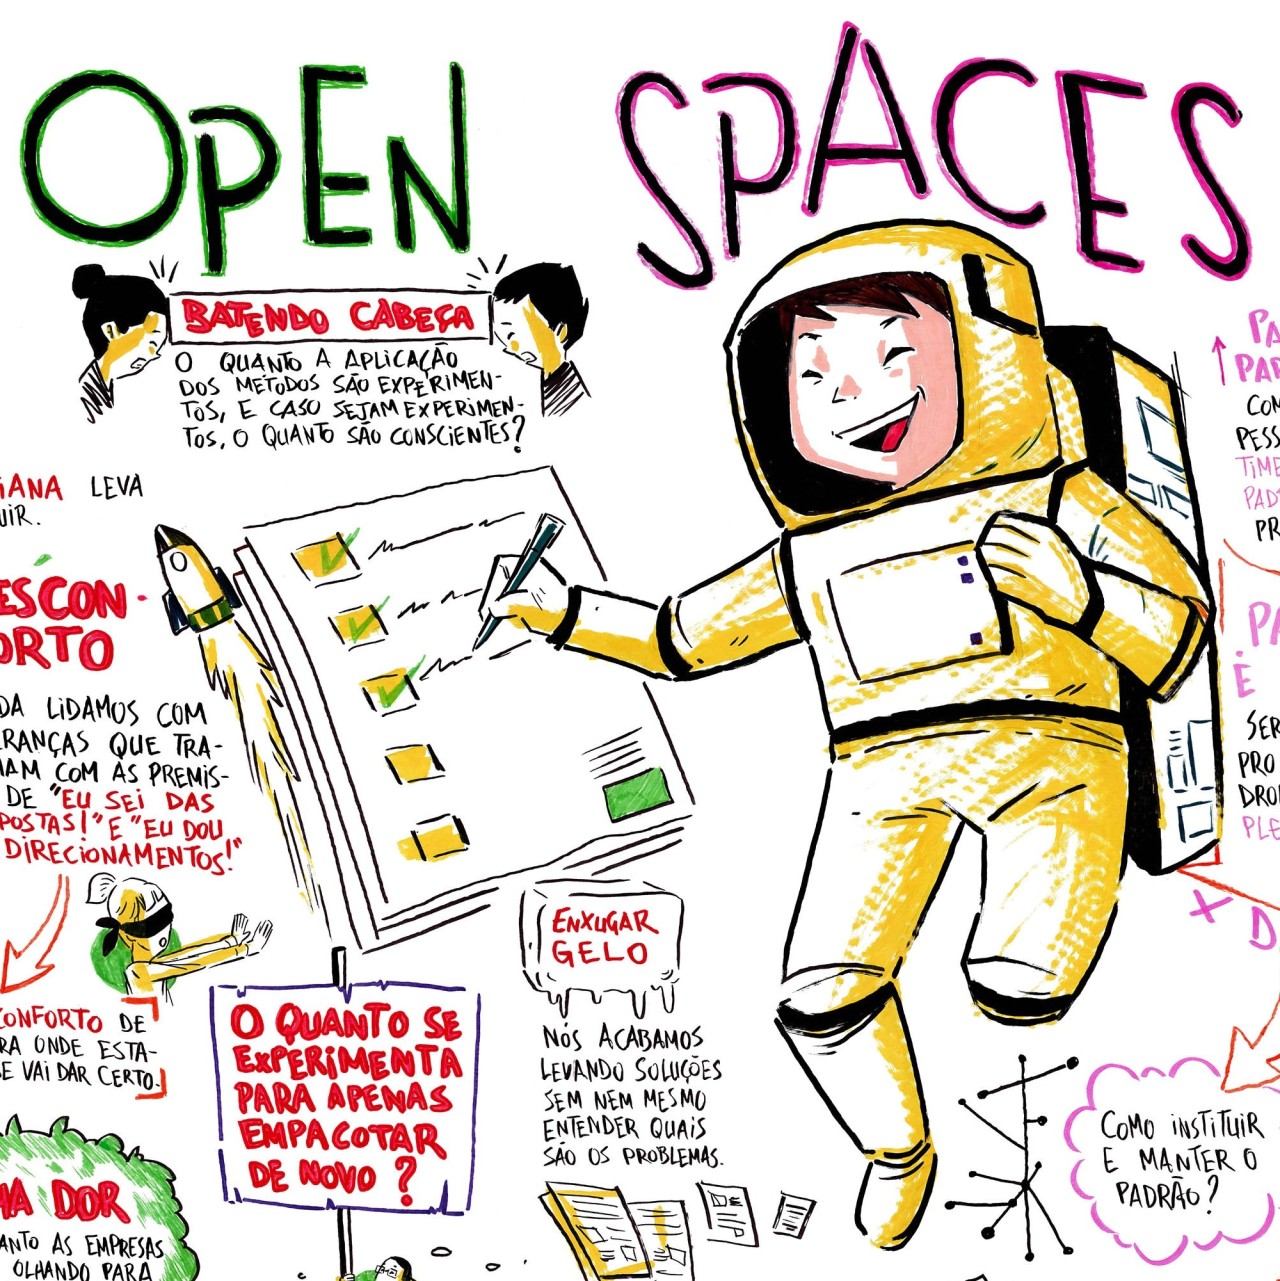 OPEN SPACES
BATENDO CABEÇA
O QUANTO A APLICAÇÃO
DOS METODOS SÃO EXPERIMEN-
TOS, E CASO SEJAM EXPERIMEN-
TOS, O QUANTO SÃO CONSCIENTES?
LEVA
DA LIDAMOS COM
QUE TRA-
COM AS PREMIS-
DE "EU SEI DAS
E "EU DOU
DIRECIONAMENTOS!"
DE
ONDE ESTA-
VAI DAR CERTO.
DOR
AS EMPRESAS
OLHANDO PARA
O QUANTO SE
EXPERIMENTA
PARA APENAS
EMPACOTAR
DE NOVO?
ENXUGAR
GELO
NÓS ACABAMOS
LEVANDO SOLUÇÕES
SEM NEM MESMO
ENTENDER QUAIS
SÃO OS PROBLEMAS.
É
X
COMO INSTITUIR
E MANTER O
PADRÃO?